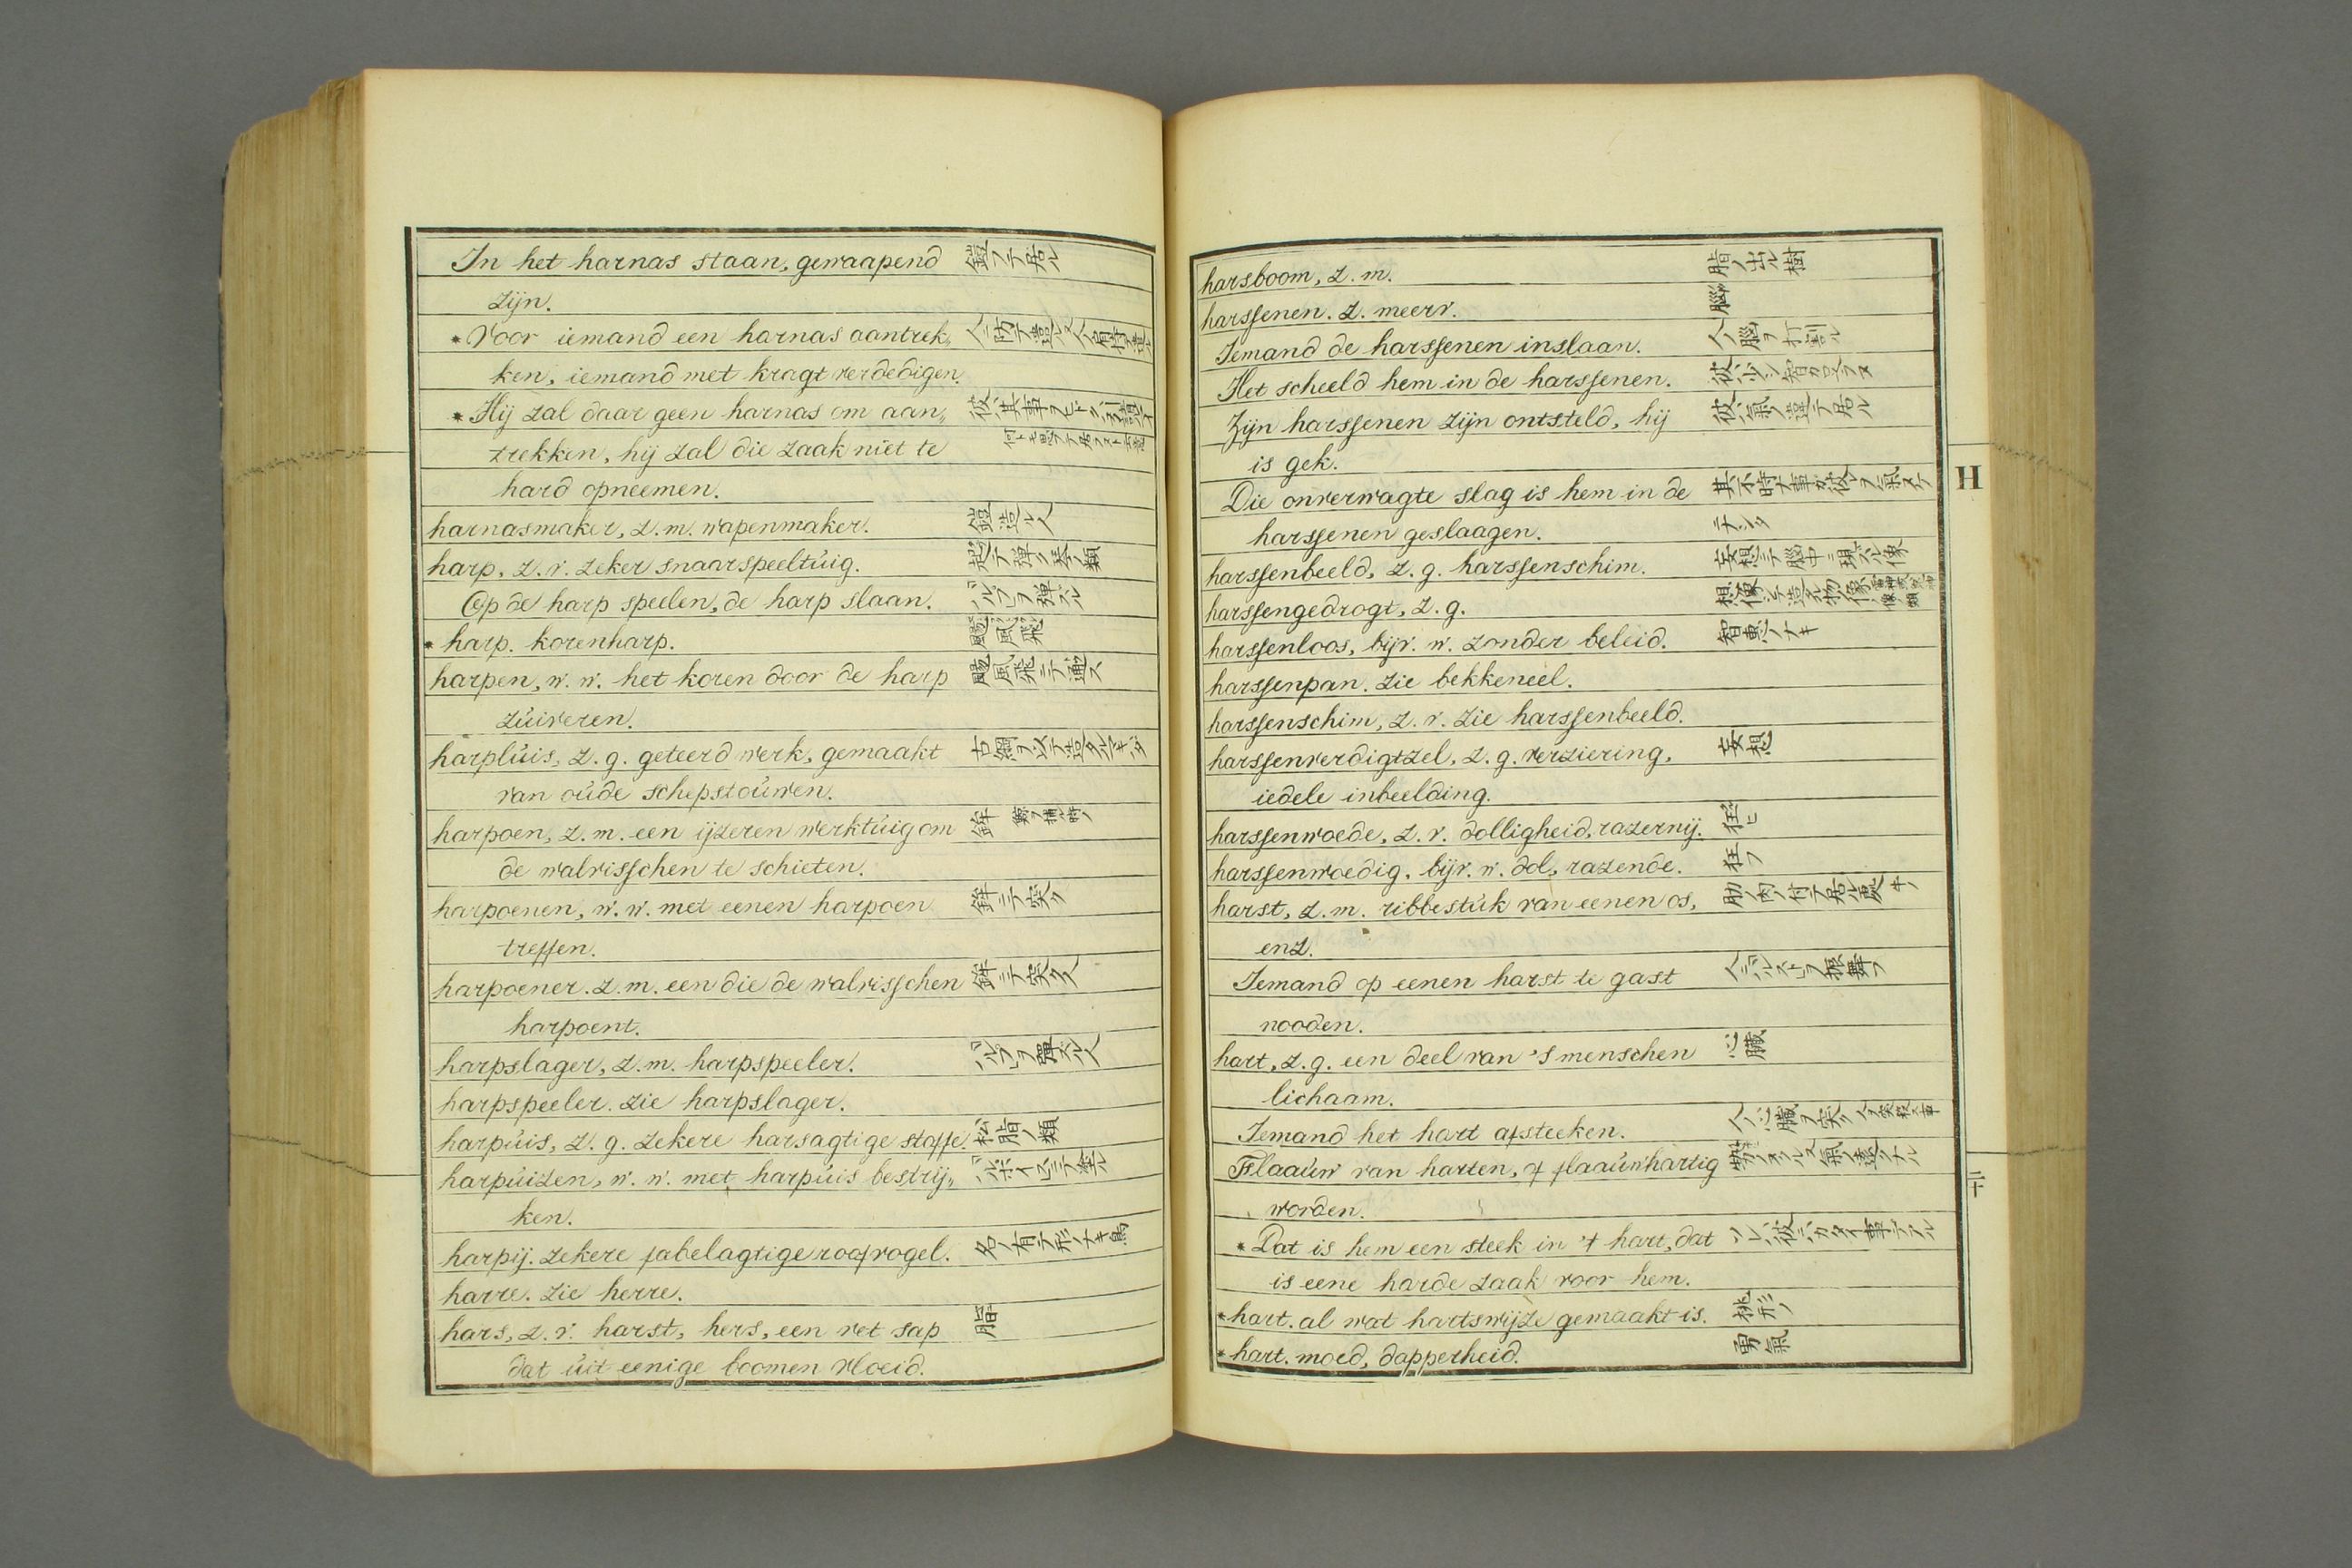 In het harnas staan, gewaapend 鎧フテ居ル
zijn.
* Voor iemand een harnas aantrek„
ken, iemand met kragt verdedigen.
* Hij zal daar geen harnas om aan„
trekken, hij zal die zaak niet te
hard opneemen.
harnasmaker, z. m. wapenmaker. 鎧造ル人
harp, z. v. zeker snaarspeeltúig.
Op de harp speelen, de harp slaan.
* harp. korenharp. 颺風飛
harpen, w. w. het koren door de harp
zúiveren.
harplúis, z. g. geteerd werk, gemaakt
van oúde schepstoúwen.
harpoen, z. m. een ijzeren werktúig om 鉾
de walvisschen te schieten.
harpoenen, w. w. met eenen harpoen 鉾ニテ突ク
treffen.
harpoener. z. m. een die de walvisschen 鉾ニテ突ク人
harpoent.
harpslager, z. m. harpspeeler.
harpspeeler. zie harpslager.
harpúis, z. g. zekere harsagtige stoffe. 松脂ノ類
harpúizen, w. w. met harpúis bestrij„
ken.
harpij. zekere fabelagtige roofvogel. 名ノ有テ形ノナキ鳥
harre. zie herre.
hars, z. v. harst, hers, een vet sap 脂
dat úit eenige boomen vloeid.
harsboom, z. m. 脂ノ出ル樹
harssenen. z. meerv. 腦
Iemand de harssenen inslaan. 人ノ腦ヲ打割ル
Het scheeld hem in de harssenen.
Zijn harssenen zijn ontsteld, hij 彼ハ氣ノ違テ居ル
is gek.
Die onverwagte slag is hem in de
harssenen geslaagen.
harssenbeeld, z. g. harssenschim. 妄想ニテ腦中ニ現ハルル像
harssengedrogt, z. g.
harssenloos, bijv. w. zonder beleid. 智惠ノナキ
harssenpan. zie bekkeneel.
harssenschim, z. v. zie harssenbeeld.
harssenverdigtzel, z. g. verziering, 妄想
iedele inbeelding.
harssenwoede, z. v. dolligheid, razernij. 狂ヒ
harssenwoedig. bijv. w. dol, razende. 狂フ
harst, z. m. ribbestúk van eenen os,
enz.
Iemand op eenen harst te gast
nooden.
hart, z. g. een deel van 's menschen 心臟
lichaam.
Iemand het hart afsteeken.
Flaaúw van harten, of flaaúwhartig
worden.
* Dat is hem een steek in 't hart, dat
is eene harde zaak voor hem.
* hart. al wat hartswijze gemaakt is. 桃形ノ
* hart. moed, dapperheid. 勇氣
H